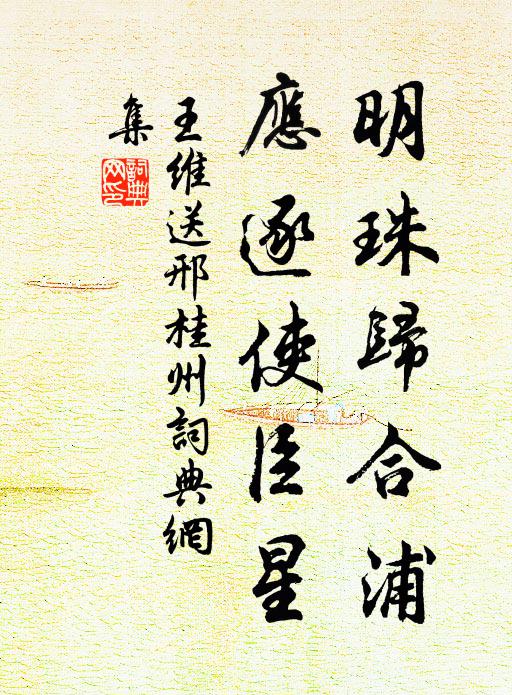 明珠歸合浦
應逐使臣星
王維送邢桂州詞典網
集
詞典
网印